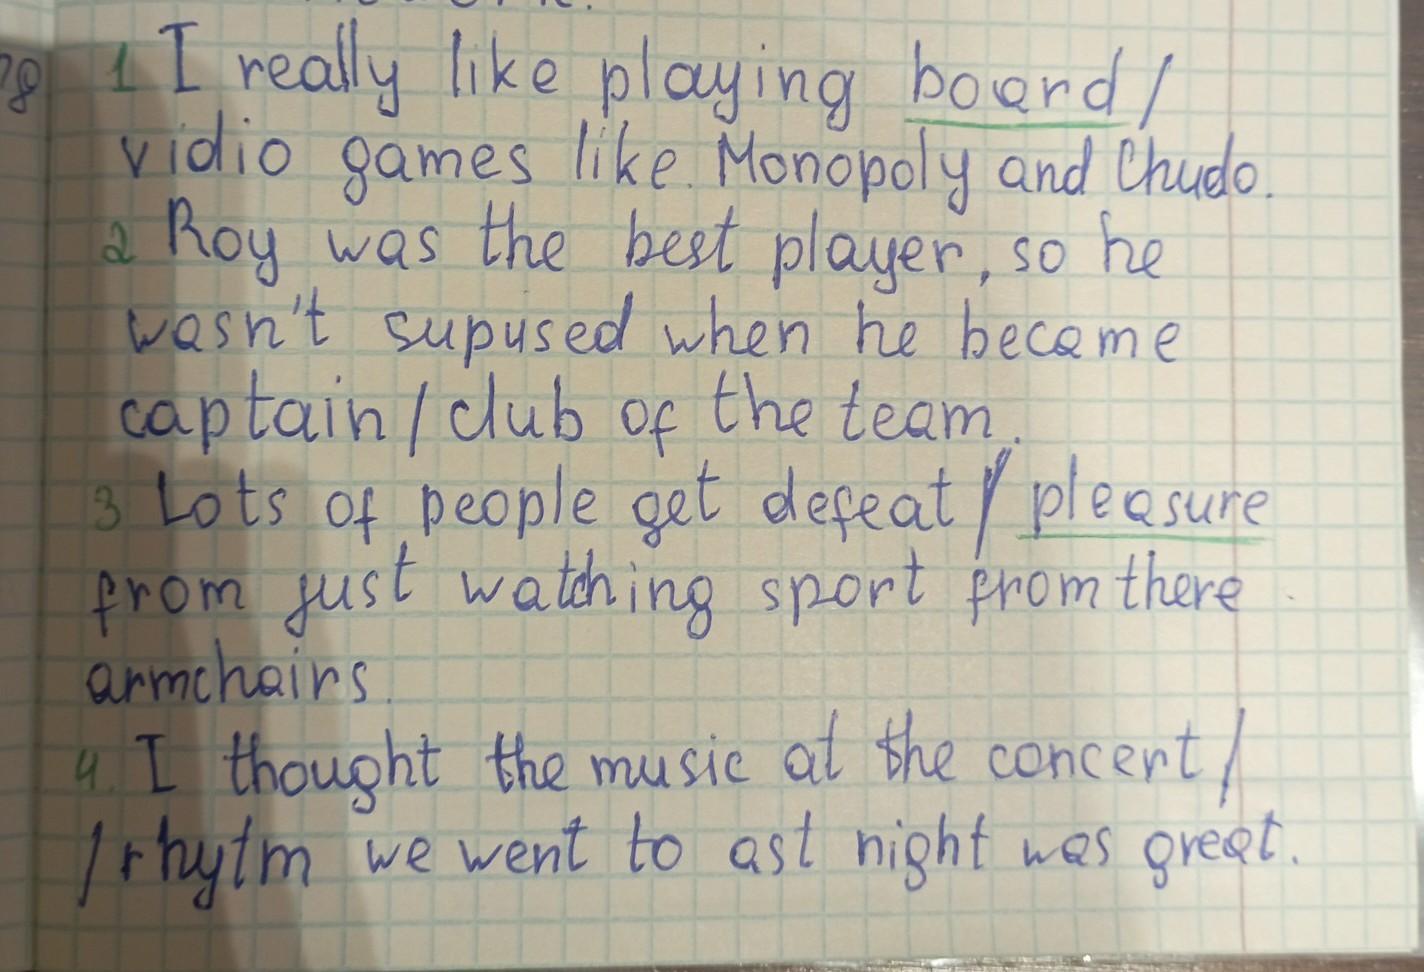 1 I really like playing board/
vidio games like Monopoly and Chudo.
2 Roy was the best player, so he
wasn't supused when he became
captain/club of the team.
3 Lots of people get defeat/pleasure
from just watching sport from there
armchairs.
4. I thought the music at the concert/
/rhytm we went to ast night was great.